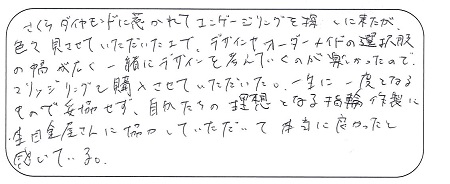 さくらダイヤモンドに惹かれてエンゲージリングを探しに来たが、
色々見させていただいた上で、デザインやオーダーメイドの選択肢
の幅が広く一緒にデザインを考えていくのが楽しかったので、
マリッジリングも購入させていただいた。一生に一度となる
もので妥協せず、自分たちの理想となる指輪作製に
生田金屋さんに協力していただいて本当に良かったと
感じている。